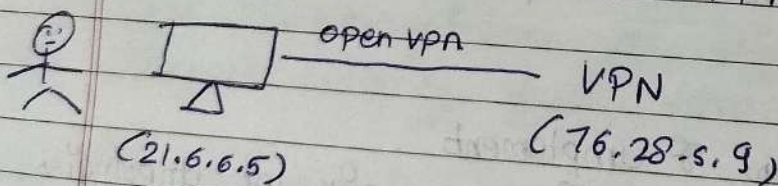 open vpn
VPN
(21.6.6.5)
(76.28.5.9)